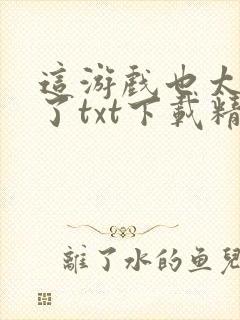 這游戲也太
了txt下載精
離了水的鱼兒